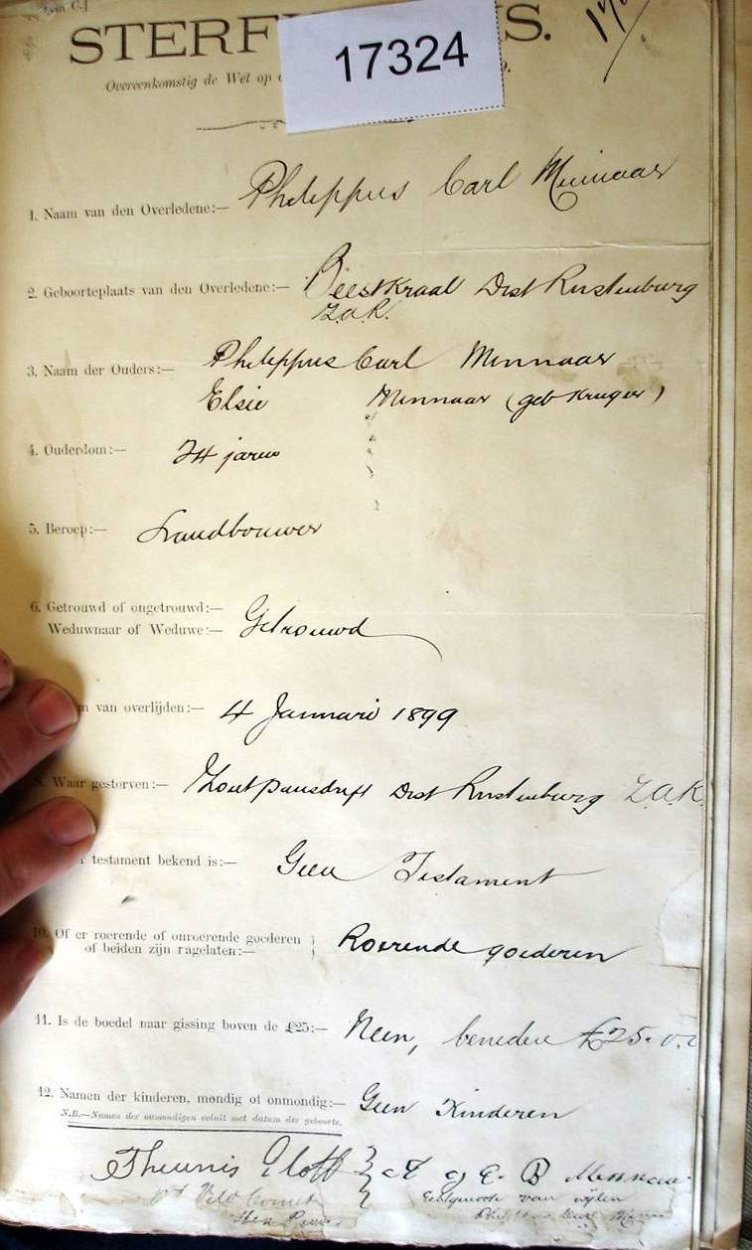 STERF S.
17324
Overeenkomstig de Wet op
1. Naam van den Overledene:— Philippus Carl Minnaar
2. Geboorteplaats van den Overledene:— Beestkraal Dist Rustenburg
Z.A.R.
3. Naam der Ouders:— Philippus Carl Minnaar
Elsie Minnaar (geb Kruger)
4. Ouderdom:— 34 jaren
5. Beroep:— Landbouwer
6. Getrouwd of ongetrouwd:—
Weduwnaar of Weduwe:— Getrouwd
van overlijden:— 4 Januari 1899
8. Waar gestorven:— Zoutpansdrift Dist Rustenburg Z.A.R.
testament bekend is:— Geen Testament
10. Of er roerende of onroerende goederen
of beiden zijn nagelaten:— Roerende goederen
11. Is de boedel naar gissing boven de £25:— Neen, beneden £25.
12. Namen der kinderen, mondig of onmondig:— Geen Kinderen
N.B.—Namen der onmondigen voluit met datum der geboorte.
Theunis Eloff E. Minnaar
Veld Cornet Echtgenoote van wijlen
Hex Rivier